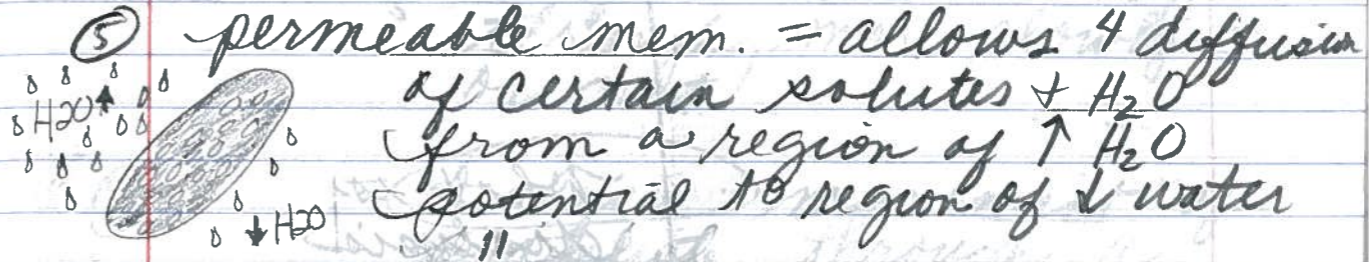 ⑤ permeable mem. = allows 4 diffusion
of certain solutes + H₂O
H2O↑
from a region of ↑ H₂O
potential to region of ↓ water
↓ H2O
"